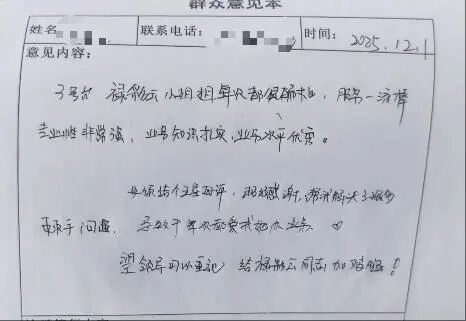 群众意见本
姓名 联系电话: 时间: 2025.12.1
意见内容:
3号台 禄彩云 小姐姐每次都很, 服务一流棒
专业性非常强, 业务知识扎实, 业务水平优秀。
必须给个五星好评, 感谢, 帮我解决了很多
棘手问题, 导致于每次都爱找她办业务 ♡
望领导可以重视 给禄彩云同志加鸡腿!